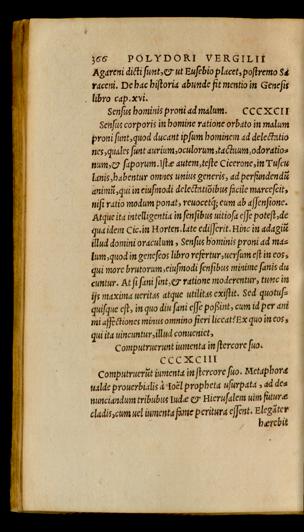 366 POLYDORI VERGILII
Agareni dicti sunt, & ut Eusebio placet, postremo Sa
raceni. De hac historia abunde fit mentio in Genesis
libro cap. xvi.
Sensus hominis proni ad malum. CCCXCII
Sensus corporis in homine ratione orbato in malum
proni sunt, quod ducant ipsum hominem ad delectatio
nes, quales sunt aurium, oculorum, tactuum, odoratio-
num, & saporum. Istæ autem, teste Cicerone, in Tuscu
lanis, habentur omnes unius generis, ad perfundendū
animū, qui in eiusmodi delectatiōibus facile marcescit,
nisi ratio modum ponat, reuocetq; eum ab assensione.
Atque ita intelligentia in sensibus uitiosa esse potest, de
qua idem Cic. in Horten. late edisserit. Hinc in adagiū
illud domini oraculum, Sensus hominis proni ad ma-
lum, quod in geneseos libro refertur, uersum est in eos,
qui more brutorum, eiusmodi sensibus minime sanis du
cuntur. At si sani sint, & ratione moderentur, tunc in
ijs maxima ueritas atque utilitas existit. Sed quotus-
quisque est, in quo diu sani esse possint, cum id per ani
mi affectiones minus omnino fieri liceat? Ex quo in eos,
qui ita uincuntur, illud conuenit,
Computruerunt iumenta in stercore suo.
CCCXCIII
Computruerūt iumenta in stercore suo. Metaphora
ualde prouerbialis à Ioël propheta usurpata, ad de-
nunciandum tribubus Iudæ & Hierusalem uim futuræ
cladis, cum uel iumenta fame peritura essent. Elegāter
hærebit